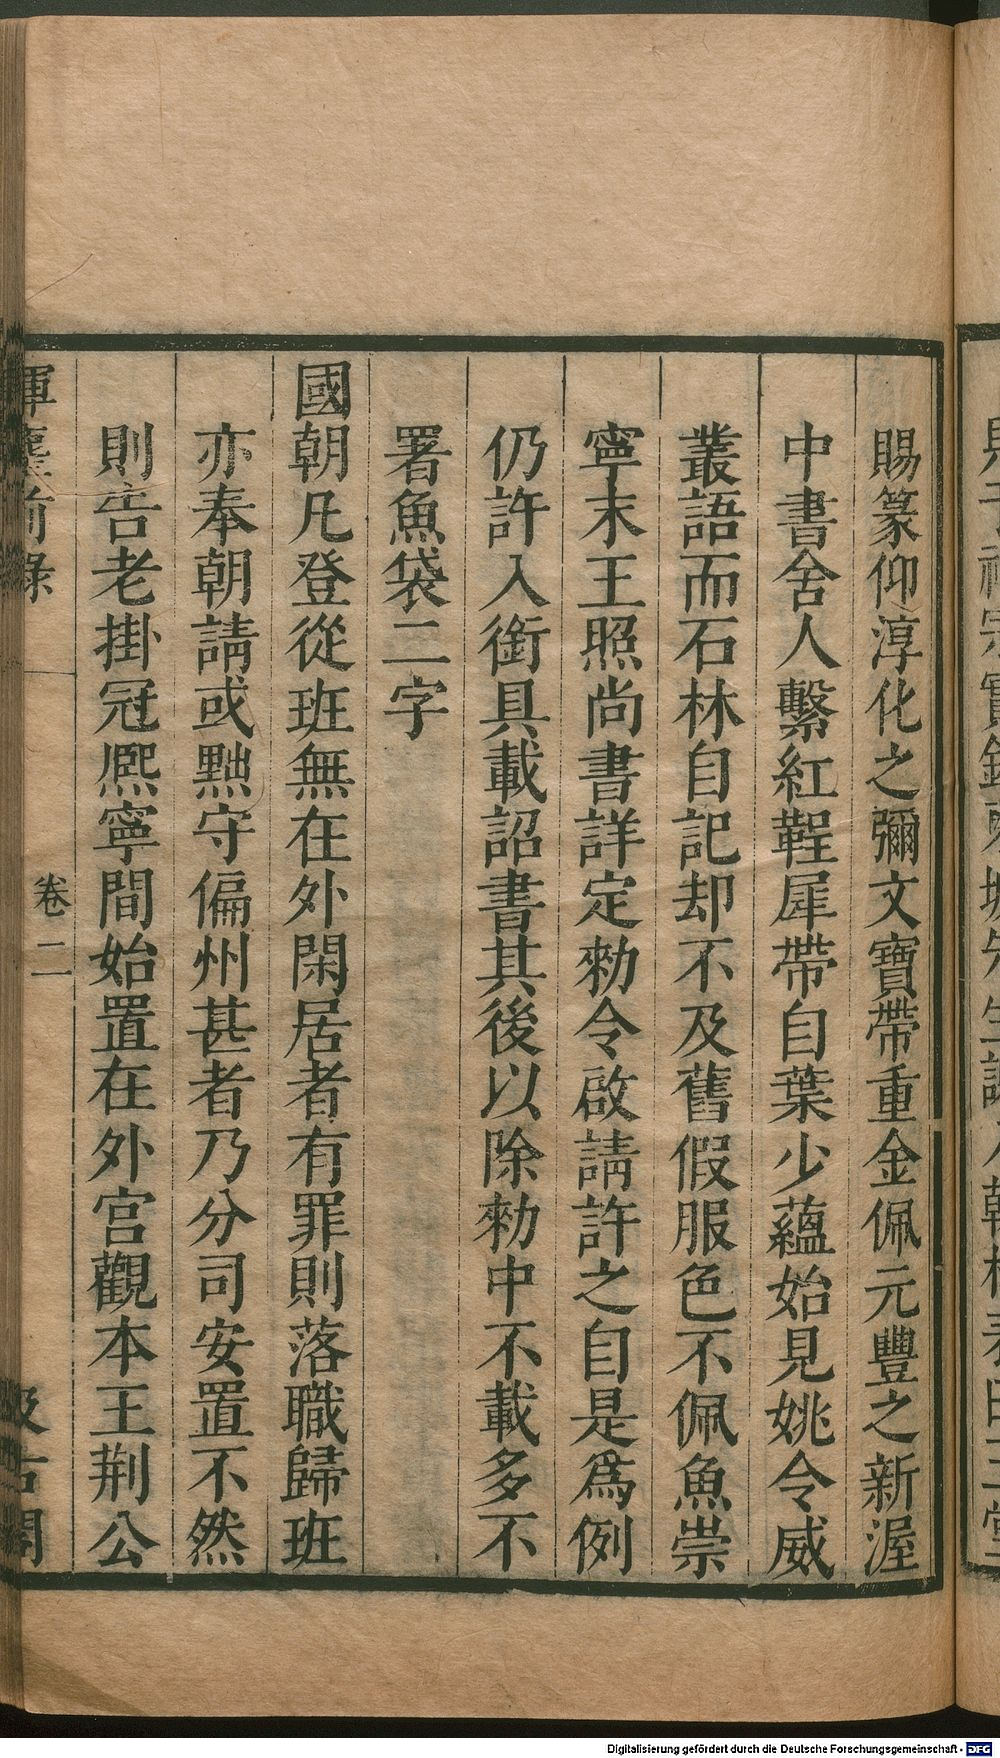 賜篆仰淳化之彌文寶帶重金佩元豐之新渥
中書舍人繫紅鞓犀帶自葉少蘊始見姚令威
叢語而石林自記却不及舊假服色不佩魚崇
寧末王照尚書詳定勑令啟請許之自是爲例
仍許入銜具載詔書其後以除勑中不載多不
署魚袋二字
國朝凡登從班無在外閑居者有罪則落職歸班
亦奉朝請或黜守偏州甚者乃分司安置不然
則告老掛冠熈寧間始置在外宮觀本王荆公
揮麈前錄
卷二
汲古閣
Digitalisierung gefördert durch die Deutsche Forschungsgemeinschaft - DFG